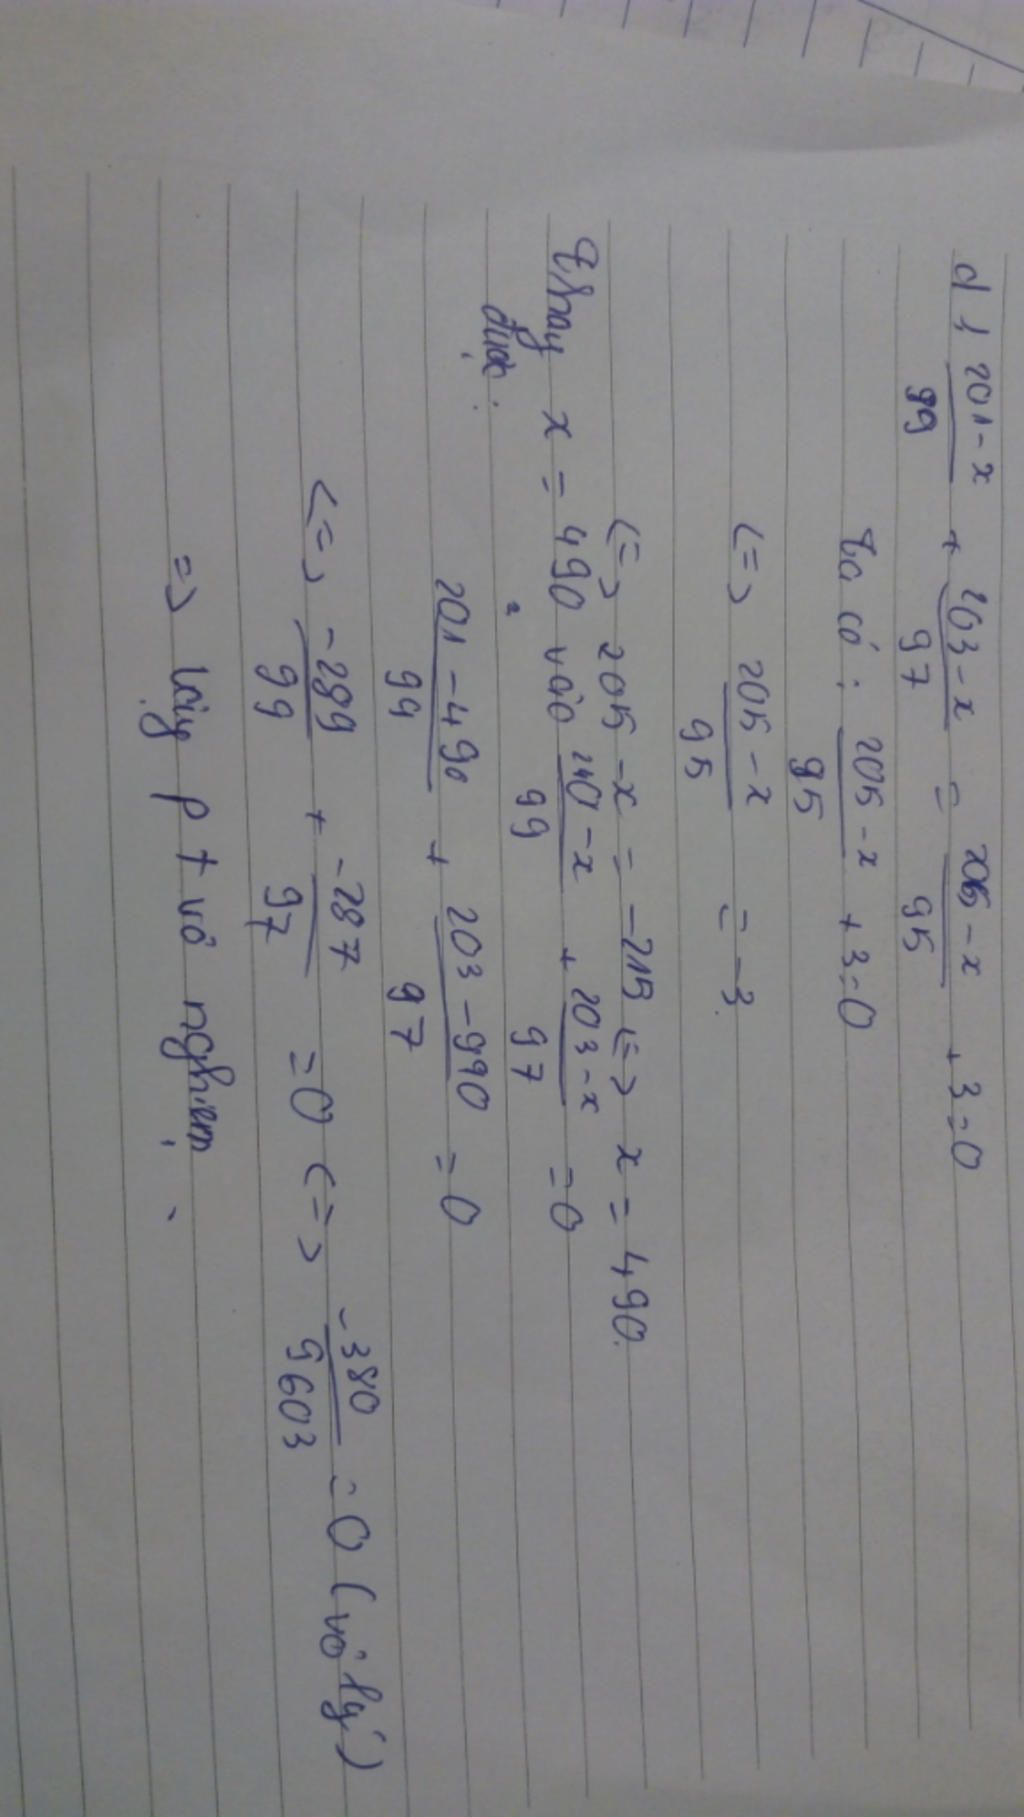 d) 201-x/99 + 203-x/97 = 205-x/95 + 3=0
Ta có: 205-x/95 +3=0
<=> 205-x/95 = -3.
<=> 205-x = -215 <=> x = 490.
Thay x = 490 vào 201-x/99 + 203-x/97 =0
được:
201-490/99 + 203-990/97 =0
<=> -289/99 + -287/97 =0 <=> -380/9603 =0 (vô lý)
=> Vậy pt vô nghiệm.